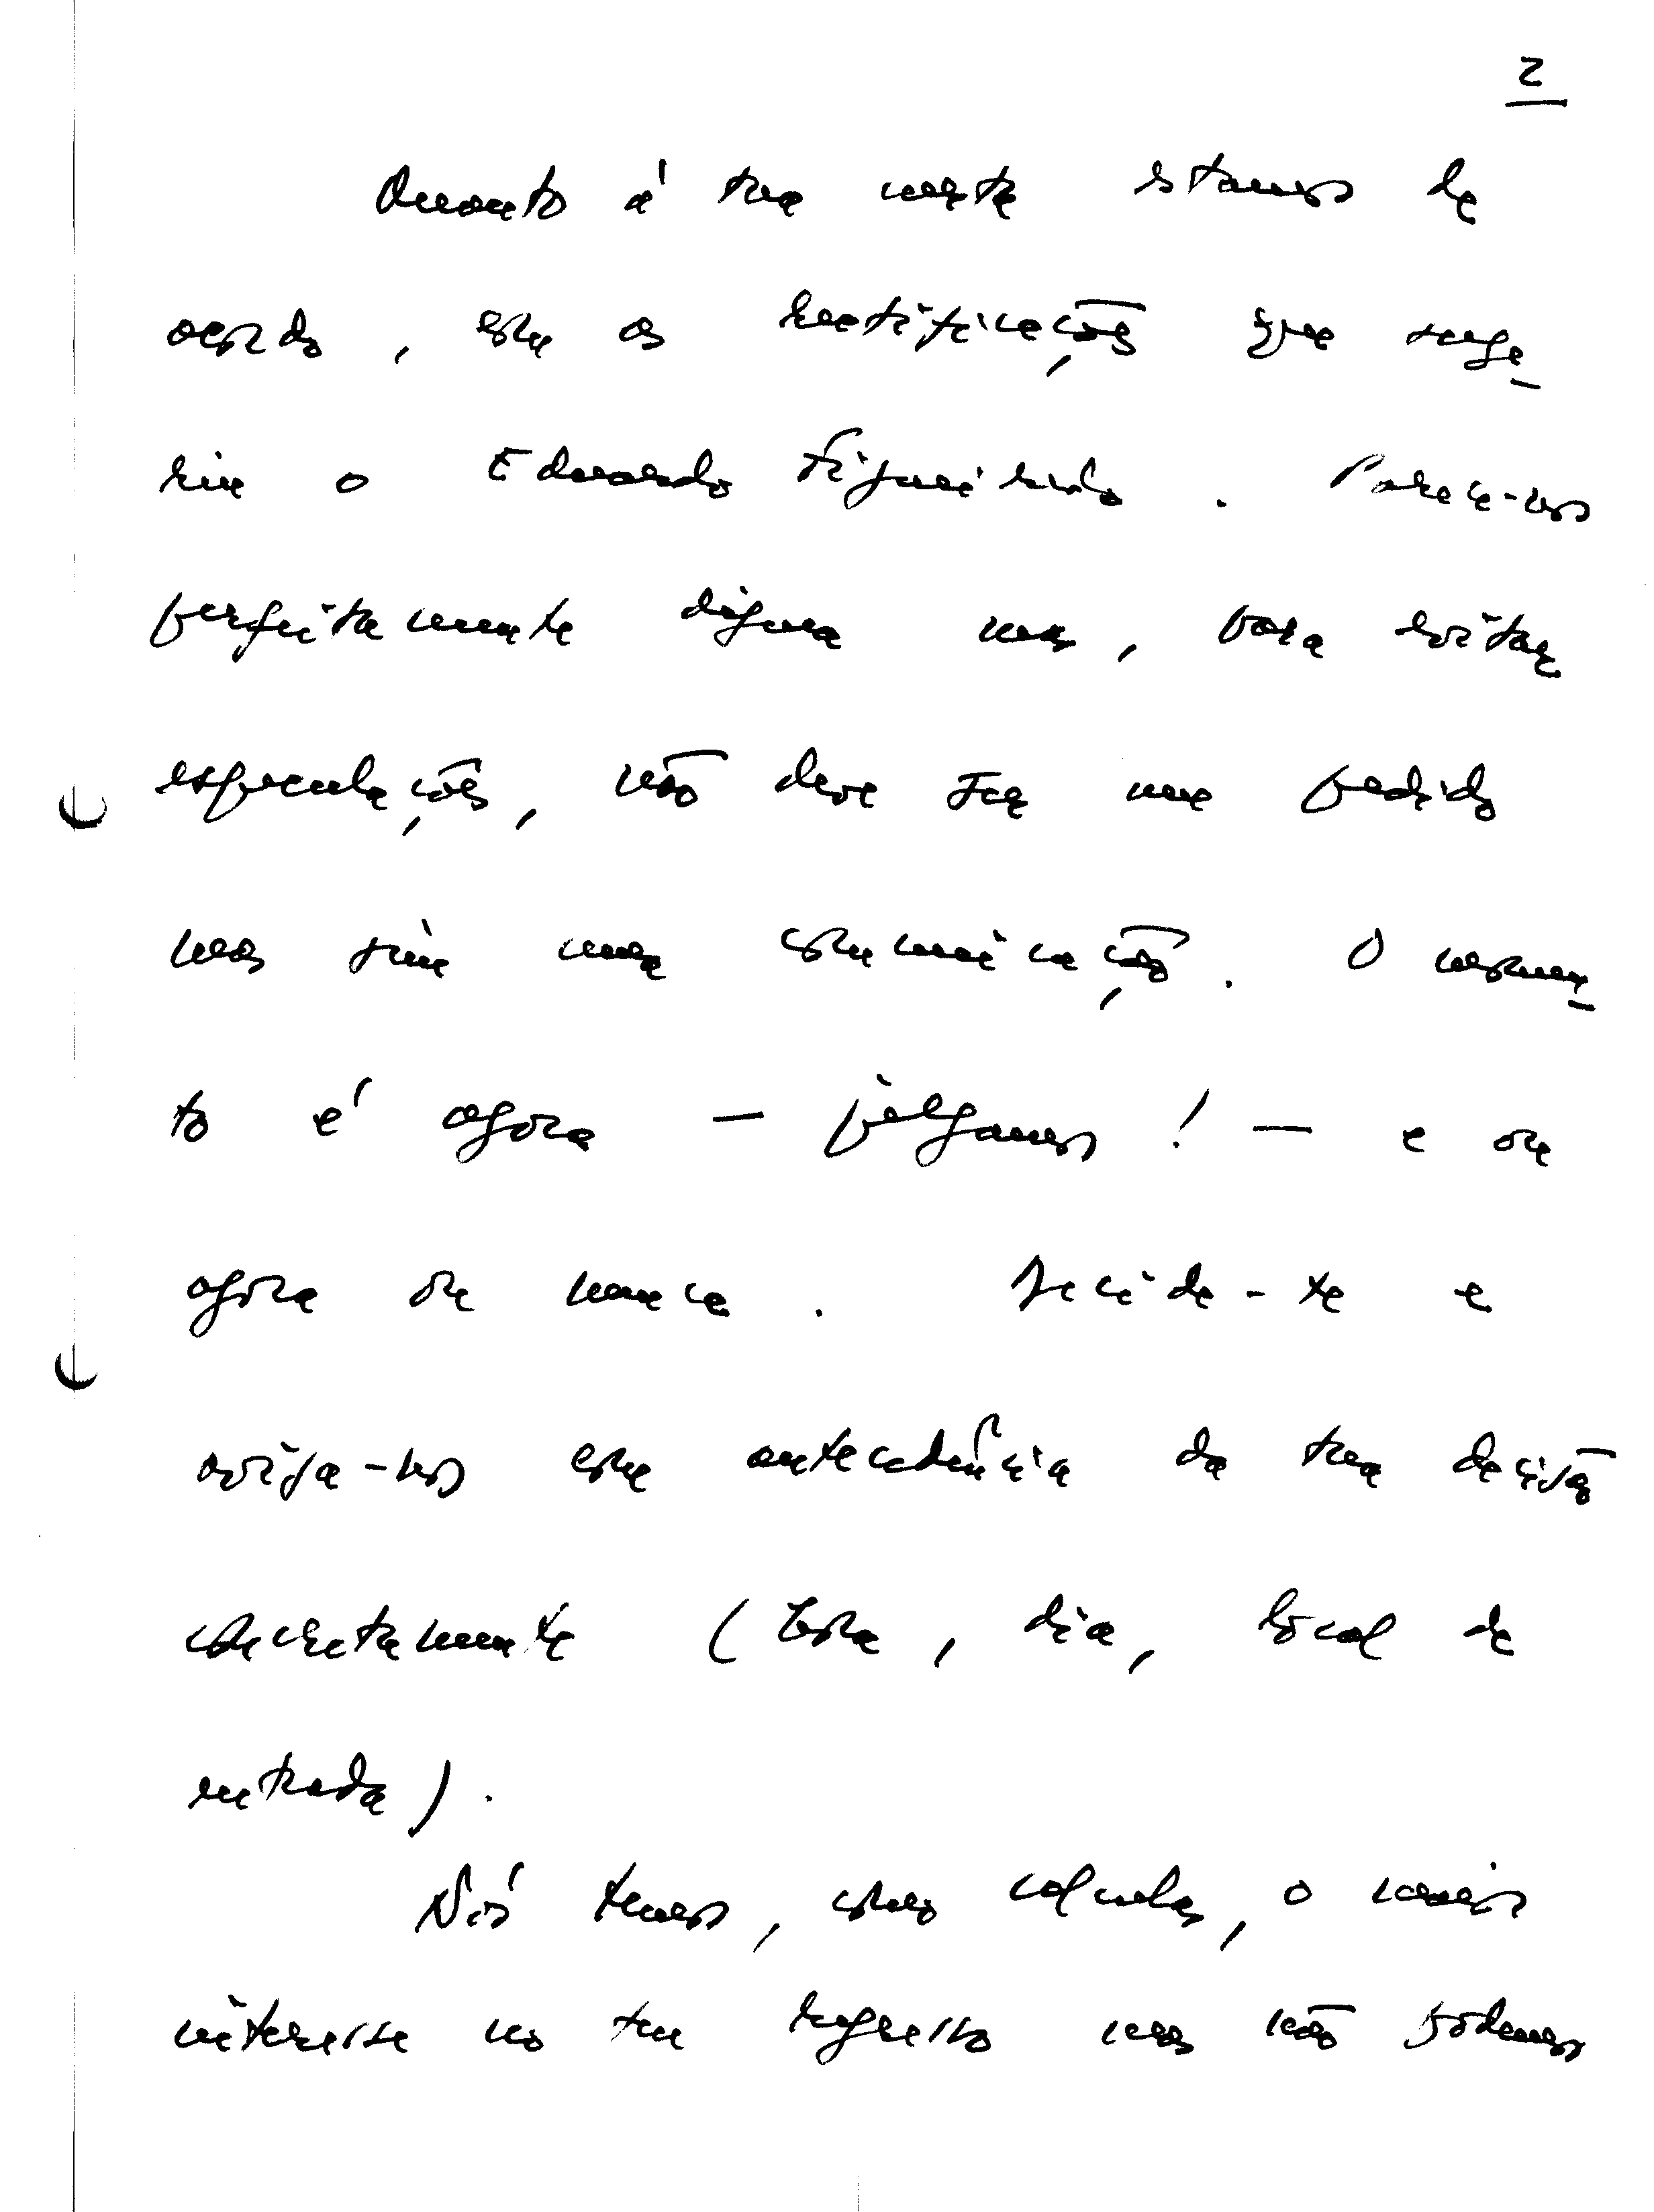 2
Quanto á tua nota estamos de
acordo, com as rectificações que suge-
riu o Eduardo Figueiredo. Parece-nos
perfeitamente digna mas, para evitar
especulações, não deve ser um pedido
mas sim uma comunicação. O momen-
to é agora — julgamos! — e ou
agora ou nunca. Decide-te e
avisa-nos com antecedência da tua decisão
concretamente (hora, dia, local de
entrada).
Nós temos, como calculas, o maior
interesse no teu regresso mas não podemos